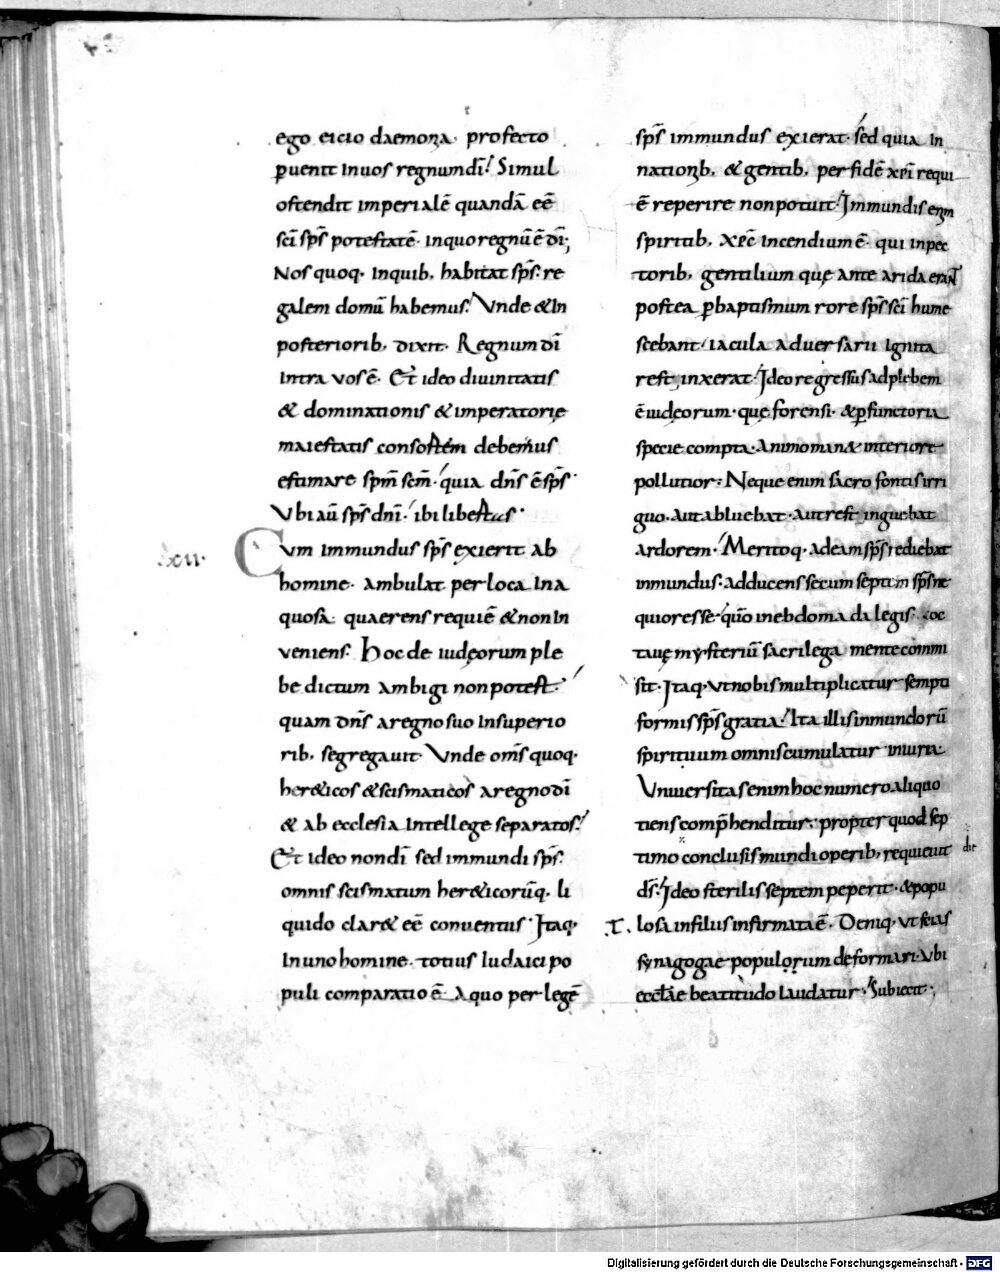 ego eicio daemonia. profecto
puenit inuos regnum dī. Simul
ostendit imperialē quandā eē
sci sp̄s potestatē. inquo regnū ē dī;
Nos quoq. inquib. habitat sp̄s. re
galem domū habemus. Vnde & in
posteriorib. dixit. Regnum dī
intra vos ē. Et ideo diuinitatis
& dominationis & imperatorię
maiestatis consortem debemus
estimare sp̄m sc̄m. quia dn̄s ē sp̄s.
Vbi aū sp̄s dn̄i. ibi libertas.
xII. Cvm immundus sp̄s exierit ab
homine. ambulat per loca ina
quosa. quaerens requiē & non in
veniens. Hoc de iudęorum ple
be dictum ambigi non potest.
quam dn̄s a regno suo insuperio
rib. segregauit. Vnde om̄s quoq.
her&icos & scismaticos a regno dī
& ab ecclesia intellege separatos.
Et ideo non dī sed immundi sp̄s.
omnis scismatum her&icorūq. li
quido clar& eē conuentus. Itaq.
In uno homine. totius Iudaici po
puli comparatio ē. A quo per legē
sp̄s immundus exierat. sed quia in
nationib. & gentib. per fidē xp̄i requi
ē reperire non potuit. Immundis enim
spiritib. xp̄c incendium ē. qui inpec
torib. gentilium quę ante arida erant
postea p baptismum rore sp̄s sc̄i hume
scebant iacula aduersarii ignita
restinxerat. Ideo regressus ad plebem
ē iudęorum. quę forensi. & pfunctoria
specie compta. animo man& interiore
pollutior. Neque enim sacro fontis irri
guo. aut abluebat. aut restinguebat
ardorem. Meritoq. ad eam sp̄s rediebat
inmundus. adducens secum septem sp̄s ne
quiores se. quō inebdomada legis. & oc
tauę mysteriū sacrilega mente commi
sit. Itaq. ut nobis multiplicatur septi
formis sp̄s gratia. Ita illis inmundorū
spirituum omnis cumulatur iniuria
Vniuersitas enim hoc numero aliquo
tiens comp̄henditur. propter quod sep
timo conclusis mundi operib. requieuit die
d̄s. Ideo sterilis septem peperit. & popu
.T. losa in filiis infirmata ē. Deniq. ut scias
synagogae populorum deformari. ubi
eccl̄ae beatitudo laudatur. Subiecit.
Digitalisierung gefördert durch die Deutsche Forschungsgemeinschaft - DFG